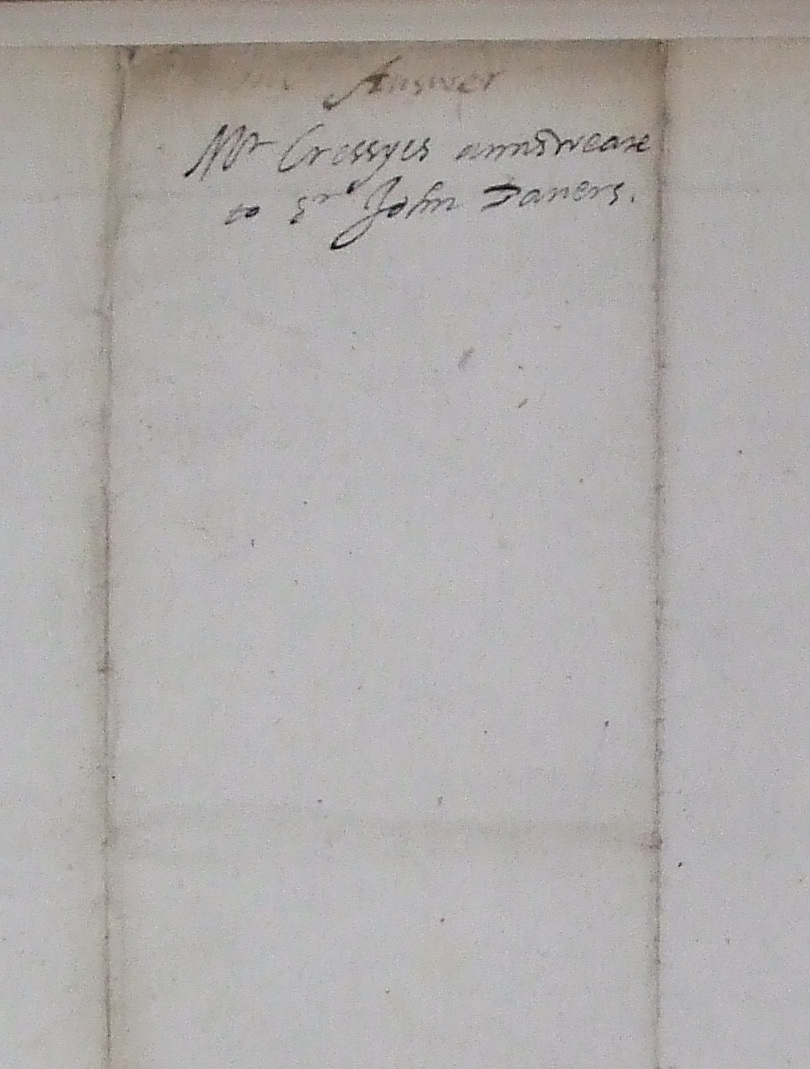 Answer
Mr Cressyes annsweare
to Sr John Daners.